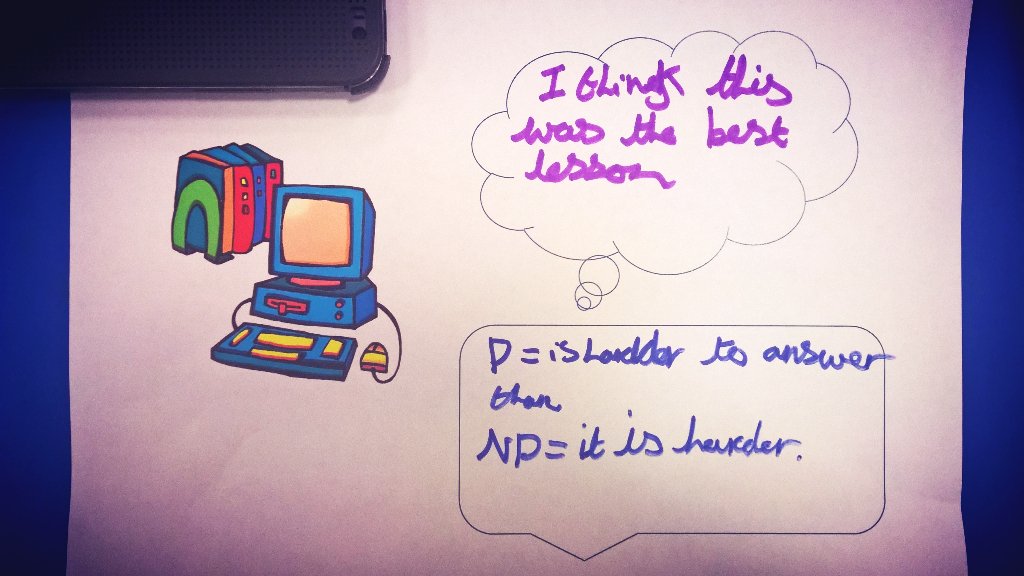 I thingk this
was the best
lesson
P = is hardder to answer
than
NP = it is harder.